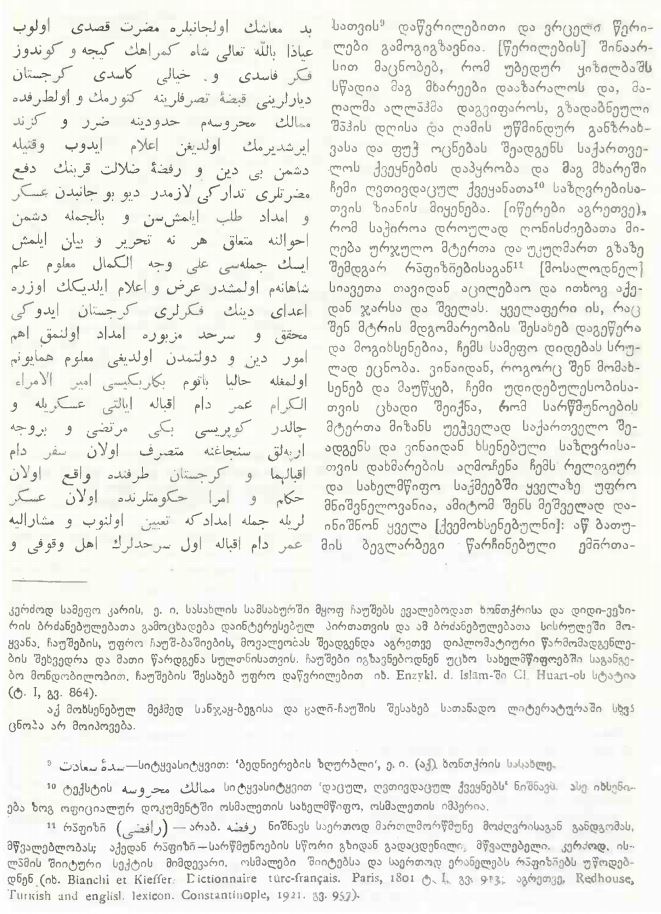 بد معاشك اولجانبلره مضرت قصدى اولوب
عياذا بالله تعالى شاه كمراهك كيجه و كوندوز
فكر فاسدى و خيالى كاسدى كرجستان
ديارلرينى قبضۀ تصرفلرينه كتورمك و اولطرفده
ممالك محروسهم حدودينه ضرر و كزند
ايرشديرمك اولديغن اعلام ايدوب وقتيله
دشمن بى دين و رفضۀ ضلالت قرينك دفع
مضرتلرى تداركى لازمدر ديو بو جانبدن عسكر
و امداد طلب ايلمش‌سن و بالجمله دشمن
احوالنه متعلق هر نه تحرير و بيان ايلمش
ايسك جمله‌سى على وجه الكمال معلوم علم
شاهانه‌م اولمشدر عرض و اعلام ايلديكك اوزره
اعداى دينك فكرلرى كرجستان ايدوكى
محقق و سرحد مزبوره امداد اولنمق اهم
امور دين و دولتمدن اولديغى معلوم همايونم
اولمغله حاليا باتوم بكلربكيسى امير الامراء
الكرام عمر دام اقباله ايالتى عسكريله و
چالدر كوپريسى بكى مرتضى و بروجه
ارپه‌لق سنجاغنه متصرف اولان سفر دام
اقبالهما و كرجستان طرفنده واقع اولان
حكام و امرا حكومتلرنده اولان عسكر
لريله جمله امدادكه تعيين اولنوب و مشاراليه
عمر دام اقباله اول سرحدلرك اهل وقوفى و
სათვის⁹ დაწვრილებითი და ვრცელი წერი-
ლები გამოგიგზავნია. [წერილების] შინაარ-
სით მაცნობებ, რომ უბედურ ყიზილბაშს
სწადია მაგ მხარეები დააზარალოს და, მა-
ღალმა ალლაჰმა დაგვიფაროს, გზადაბნეული
შაჰის დღისა და ღამის უწმინდურ განზრახ-
ვასა და ფუჭ ოცნებას შეადგენს საქართვე-
ლოს ქვეყნების დაპყრობა და მაგ მხარეში
ჩემი ღვთივდაცულ ქვეყანათა¹⁰ საზღვრებისა-
თვის ზიანის მიყენება. [იწერები აგრეთვე],
რომ საჭიროა დროულად ღონისძიებათა მი-
ღება ურჯულო მტერთა და უკუღმართ გზაზე
შემდგარ რაფიზიებისაგან¹¹ [მოსალოდნელ]
სიავეთა თავიდან აცილებაო და ითხოვ აქე-
დან ჯარსა და შველას. ყველაფერი ის, რაც
შენ მტრის მდგომარეობის შესახებ დაგეწერა
და მოგიხსენებია, ჩემს სამეფო დიდებას სრუ-
ლად ეცნობა. ვინაიდან, როგორც შენ მომახ-
სენებ და მაუწყებ, ჩემი უდიდებულესობისა-
თვის ცხადი შეიქნა, რომ სარწმუნოების
მტერთა მიზანს უეჭველად საქართველო შე-
ადგენს და ვინაიდან ხსენებული საზღვრისა-
თვის დახმარების აღმოჩენა ჩემს რელიგიურ
და სახელმწიფო საქმეებში ყველაზე უფრო
მნიშვნელოვანია, ამიტომ შენს მეშველად და-
ინიშნონ ყველა [ქვემოხსენებულნი]: აწ ბათუ-
მის ბეგლარბეგი წარჩინებული ემირთა-
კერძოდ სამეფო კარის, ე. ი. სასახლის სამსახურში მყოფ ჩაუშებს ევალებოდათ ხონთქრისა და დიდი-ვეზი-
რის ბრძანებულებათა გამოცხადება დაინტერესებულ პირთათვის და ამ ბრძანებულებათა სისრულეში მო-
ყვანა. ჩაუშების, უფრო ჩაუშ-ბაშიების, მოვალეობას შეადგენდა აგრეთვე დიპლომატიური წარმომადგენლე-
ბის შეხვედრა და მათი წარდგენა სულთნისათვის. ჩაუშები იგზავნებოდნენ უცხო სახელმწიფოებში საგანგე-
ბო მონდობილობით. ჩაუშების შესახებ უფრო დაწვრილებით იხ. Enzykl. d. Islam-ში Cl. Huart-ის სტატია
(ტ. I, გვ. 864).
აქ მოხსენებულ მეჰმედ სანჯაყ-ბეგისა და ვალი-ჩაუშის შესახებ სათანადო ლიტერატურაში სხვა
ცნობა არ მოიპოვება.
⁹ سدۀ سعادت—სიტყვასიტყვით: 'ბედნიერების ზღურბლი', ე. ი. (აქ) ხონთქრის სასახლე.
¹⁰ ტექსტის ممالك محروسه სიტყვასიტყვით 'დაცულ, ღვთივდაცულ ქვეყნებს' ნიშნავს. ასე იხსენი-
ება ზოგ ოფიციალურ დოკუმენტში ოსმალეთის სახელმწიფო, ოსმალეთის იმპერია.
¹¹ რაფიზი (رافضى) — არაბ. رفضه ნიშნავს საერთოდ მართლმორწმუნე მოძღვრისაგან განდგომას,
მწვალებლობას; აქედან რაფიზი—სარწმუნოების სწორი გზიდან გადაცდენილი, მწვალებელი. კერძოდ, ის-
ლამის შიიტური სექტის მიმდევარი. ოსმალები შიიტებსა და საერთოდ ერანელებს რაფიზიებს უწოდებ-
დნენ (იხ. Bianchi et Kieffer. Dictionnaire turc-français. Paris, 1801 ტ. I, გვ. 913; აგრეთვე, Redhouse,
Turkish and englisl. lexicon. Constantinople, 1921. გვ. 957).